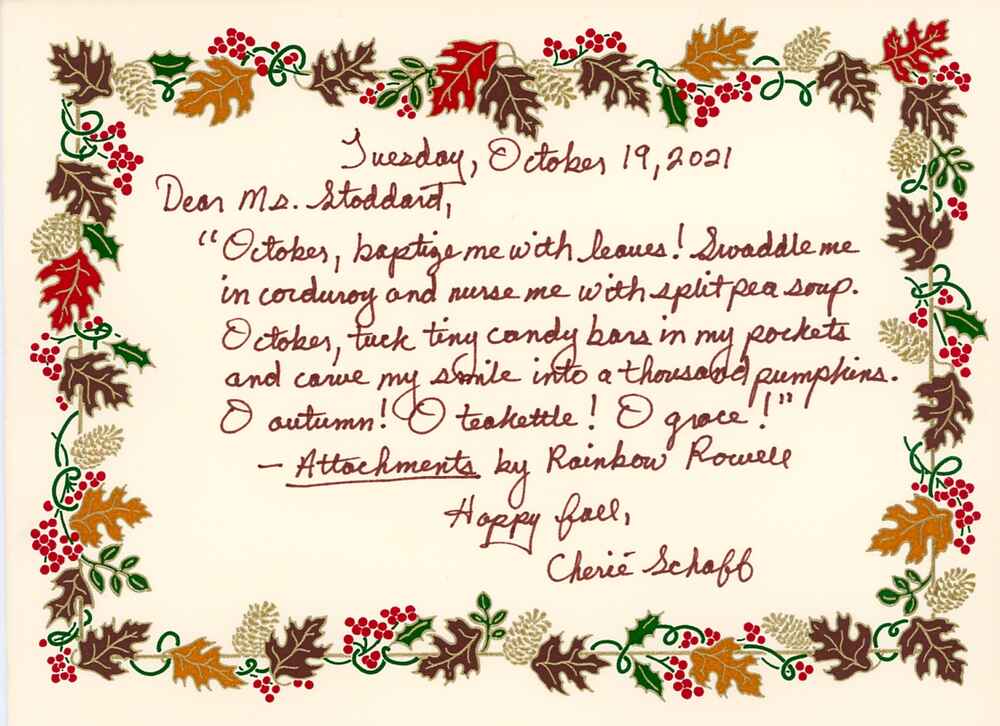 Tuesday, October 19, 2021
Dear Ms. Stoddard,
"October, baptize me with leaves! Swaddle me
in corduroy and nurse me with split pea soup.
October, tuck tiny candy bars in my pockets
and carve my smile into a thousand pumpkins.
O autumn! O teakettle! O grace!"
— Attachments by Rainbow Rowell
Happy fall,
Cherié Schaff